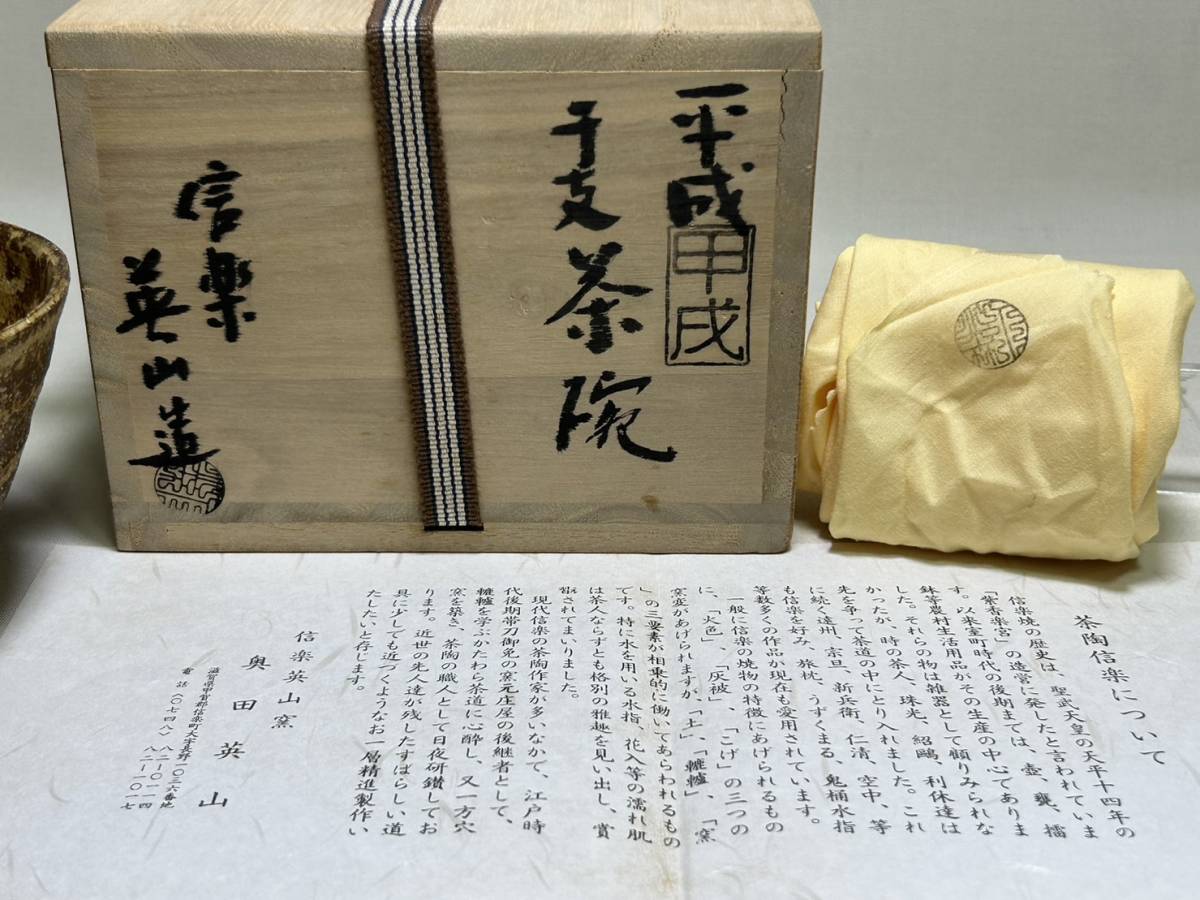 平成甲戌
干支茶碗
信楽
英山造
茶陶信楽について
信楽焼の歴史は、聖武天皇の天平十四年の
「紫香楽宮」の造営に発したと言われていま
す。以来室町時代の後期までは、壺、甕、擂
鉢等農村生活用品がその生産の中心でありま
した。それらの物は雑器として顧りみられな
かったが、時の茶人、珠光、紹鷗、利休達は
先を争って茶道の中にとり入れました。これ
に続く遠州、宗旦、新兵衛、仁清、空中、等
も信楽を好み、旅枕、うずくまる、鬼桶水指
等数多くの作品が現在も愛用されています。
一般に信楽の焼物の特徴にあげられるもの
に、「火色」、「灰被」、「こげ」の三つの
窯変があげられますが、「土」、「轆轤」、「窯
」の三要素が相乗的に働いてあらわれるもの
です。特に水を用いる水指、花入等の濡れ肌
は茶人ならずとも格別の雅趣を見い出し、賞
翫されてまいりました。
現代信楽の茶陶作家が多いなかで、江戸時
代後期帯刀御免の窯元庄屋の後継者として、
轆轤を学ぶかたわら茶道に心酔し、又一方穴
窯を築き、茶陶の職人として日夜研鑽してお
ります。近世の先人達が残したすばらしい道
具に少しても近づくようなお一層精進製作い
たしたいと存じます。
信楽英山窯
奥田英山
滋賀県甲賀郡信楽町大字長野一〇三六番地
電話(〇七四八)八二-〇一一四
八二-一〇一七